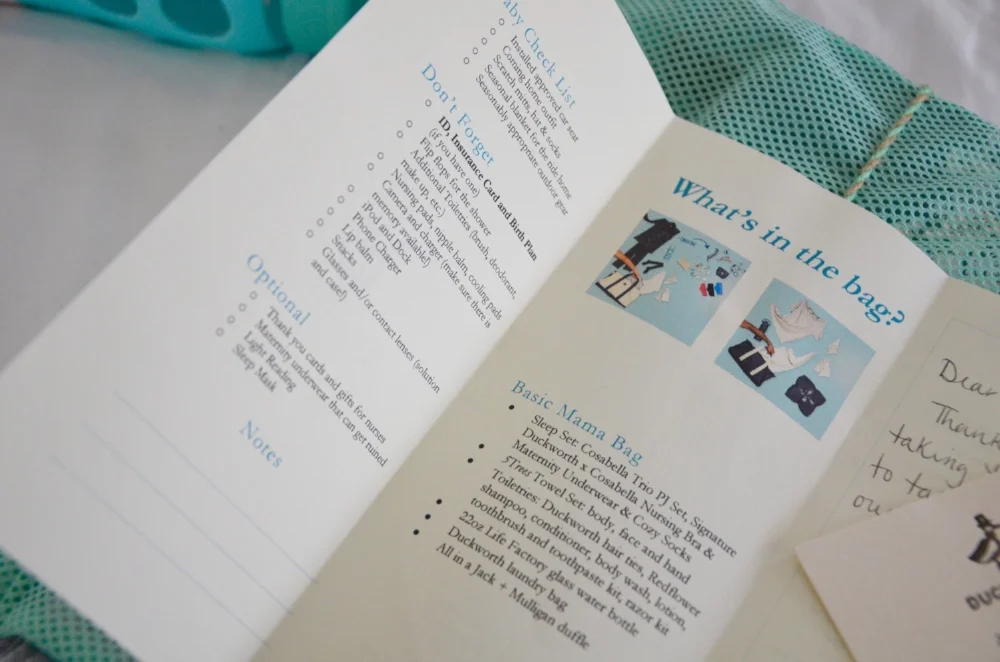 aby Check List
Installed approved car seat
Coming home outfit
Scratch mitts, hat & socks
Seasonal blanket for the ride home
Seasonably appropriate outdoor gear
Don't Forget
ID, Insurance Card and Birth Plan
(if you have one)
Flip flops for the shower
Additional Toiletries (brush, deodorant,
make up, etc.)
Nursing pads, nipple balm, cooling pads
Camera and charger (make sure there is
memory available!)
iPod and Dock
Phone Charger
Lip balm
Snacks
Glasses and/or contact lenses (solution
and case!)
Optional
Thank you cards and gifts for nurses
Maternity underwear that can get ruined
Light Reading
Sleep Mask
Notes
What's in the bag?
Basic Mama Bag
Sleep Set: Cosabella Trio PJ Set, Signature
Duckworth x Cosabella Nursing Bra &
Maternity Underwear & Cozy Socks
5Trees Towel Set: body, face and hand
Toiletries: Duckworth hair ties, Redflower
shampoo, conditioner, body wash, lotion,
toothbrush and toothpaste kit, razor kit
22oz Life Factory glass water bottle
Duckworth laundry bag
All in a Jack + Mulligan duffle
Dear
Thank
taking
to ta
ou
DUC